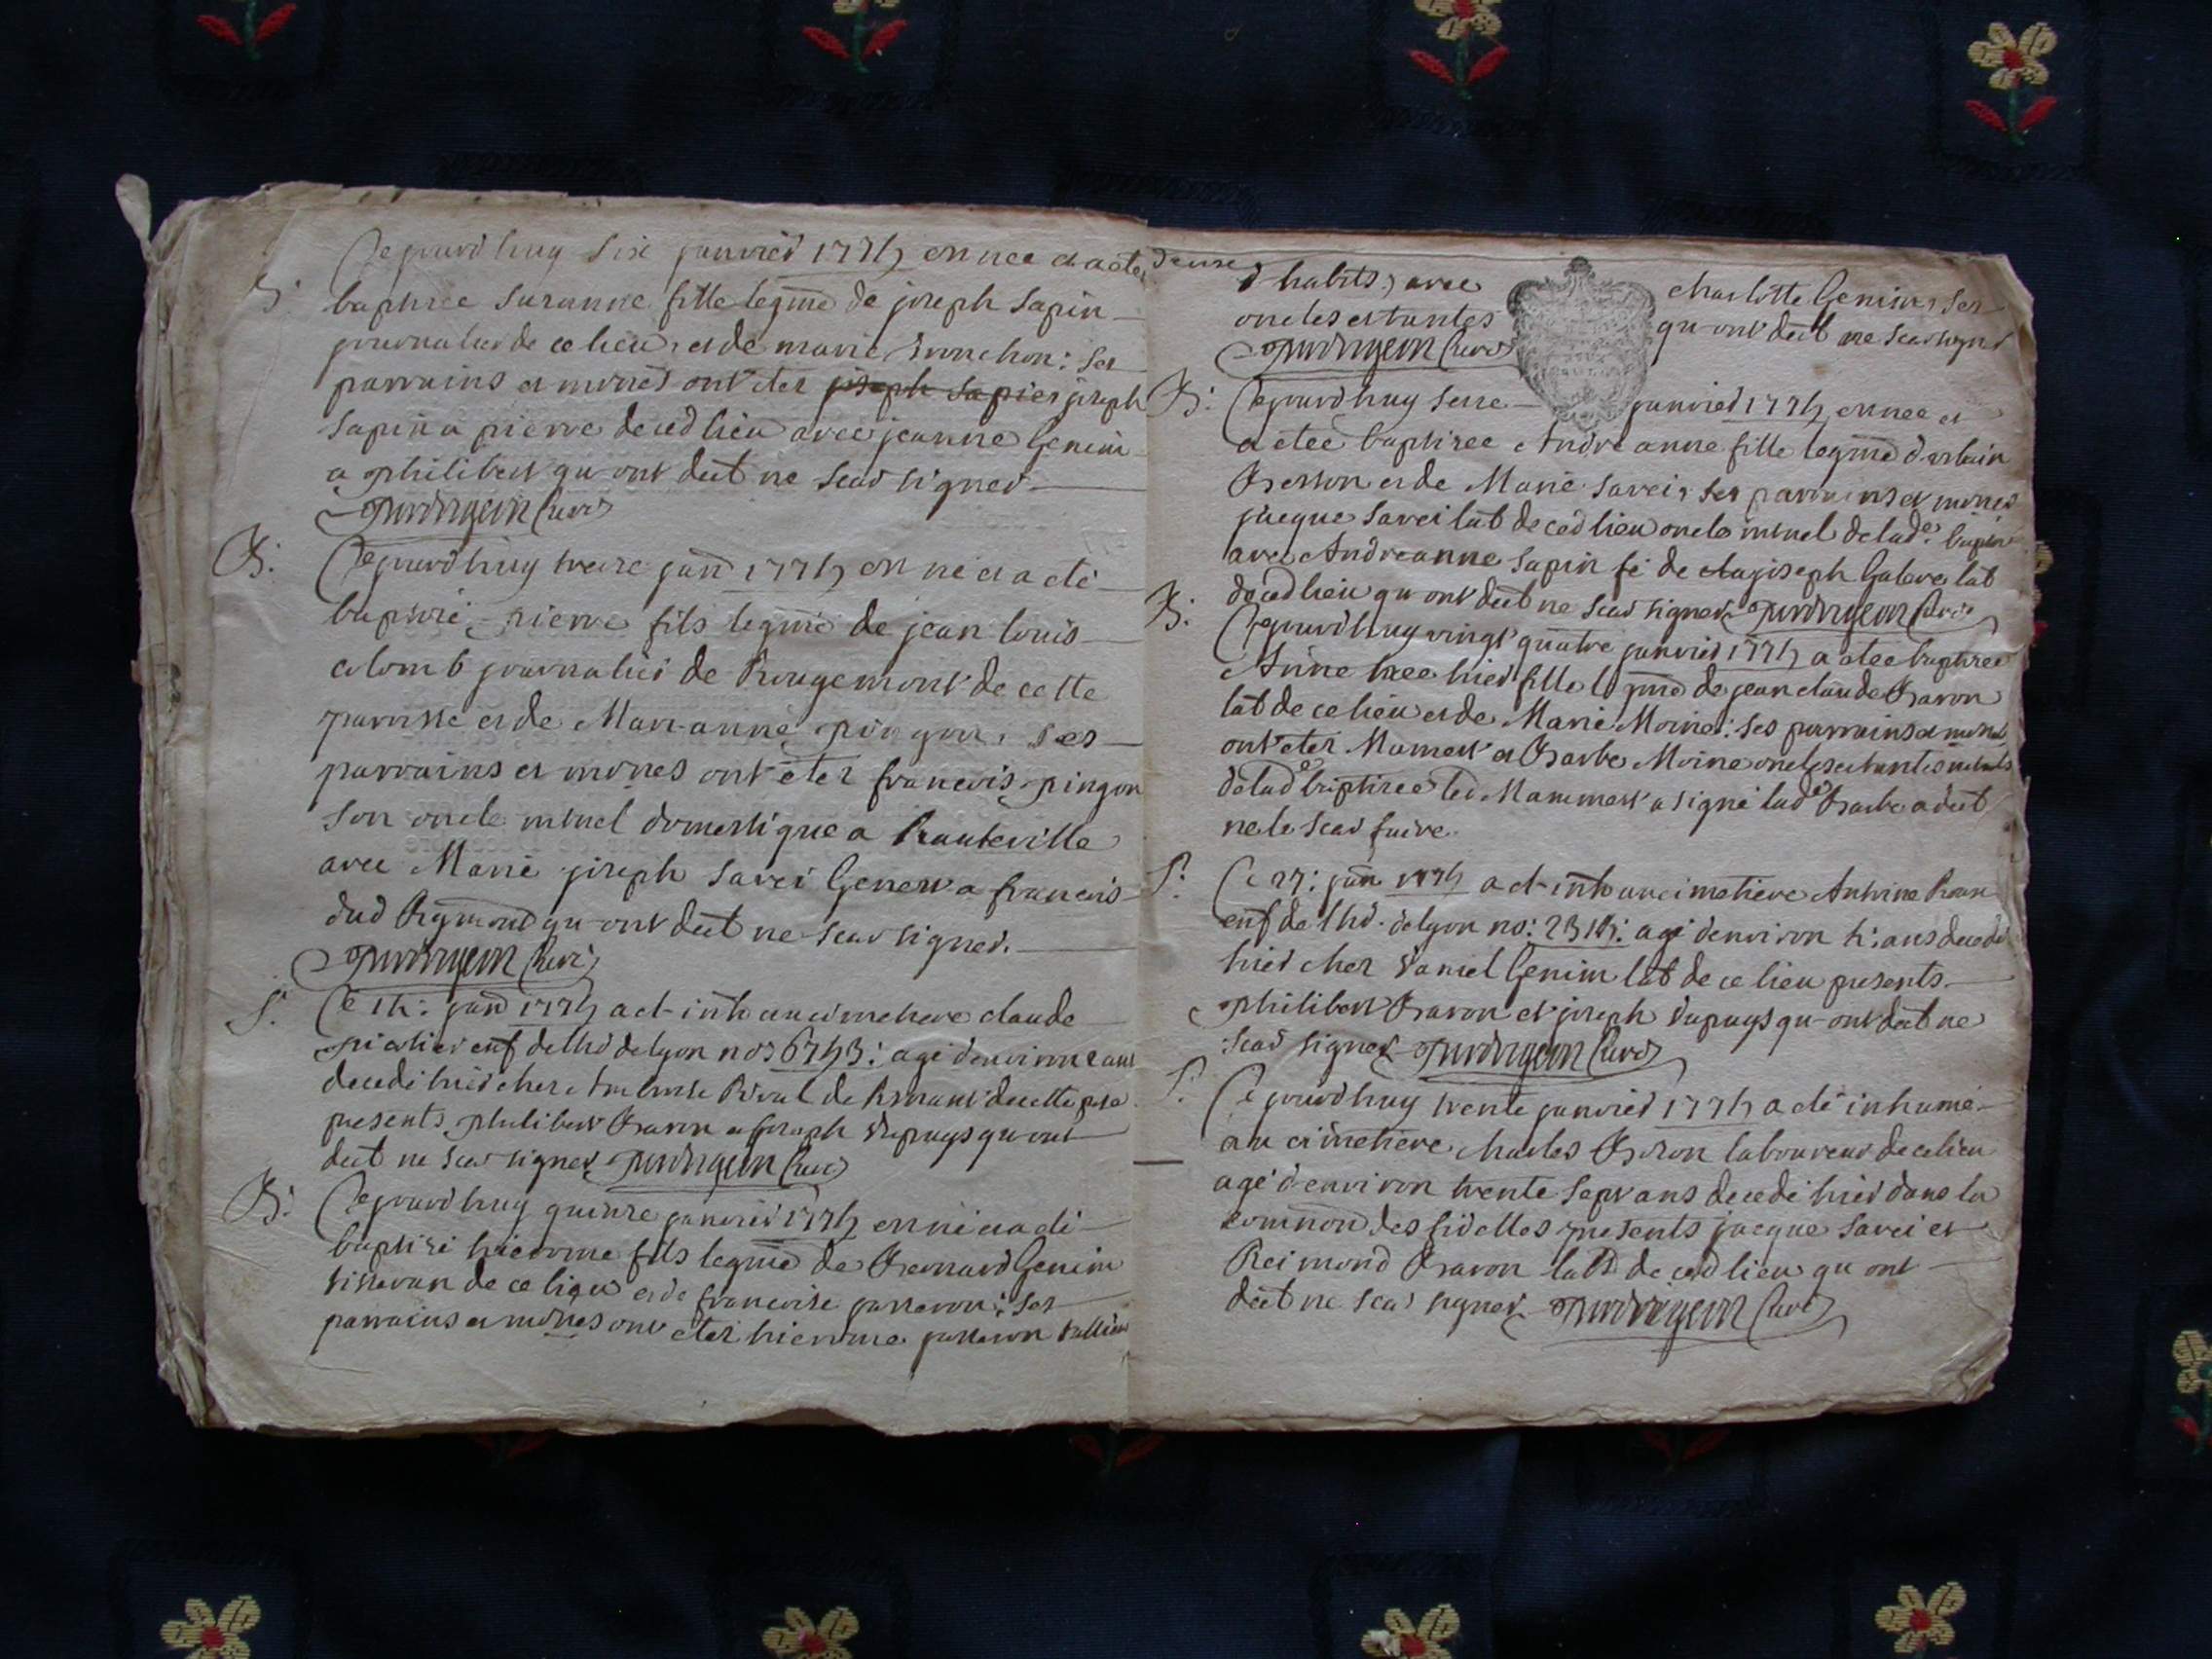 Cejourdhuy six janvier 1774 est nee et a ete
B: baptisee Suzanne fille legme de joseph Sapin
journalier de ce lieu, et de marie tronchon: ses
parrains et mones ont eter joseph sapier joseph
Sapin a pierre decedlieu avec jeanne Genin
a philibert qu ont deit ne scav signer
curé
B: Cejourdhuy treize janv 1774 est né et a eté
baptisé pierre fils legme de jean louis
colomb journalier de Rougemont de cette
paroisse et de Marianne pingon, ses
parrains et mones ont eter francois pingon
son oncle mtnel domestique a hauteville
avec Marie joseph Savei a francois
dud qu ont deit ne scav signer.
curé
S: Ce 14: janv 1774 a et inh au cimetiere claude
enf de lhd delyon no: 6743: agé denviron ans
decedé hier chez Ambroise de cette psse
presents philibert Baron et joseph dupuys qu ont
deit ne scav signer curé
B: Cejourdhuy quinze janvier 1774 est né et a eté
baptisé hierome fils legme de Bernard Genin
tisseran de ce lieu et de francoise passeron: ses
parrains et mones ont eter hierome passeron tallieur
d habits, avec charlotte Genin, ses
oncles et tantes qu ont deit ne scav signer
curé
B: Cejourdhuy seize janvier 1774 est nee et
a etee baptisee Andreanne fille legme d
Berson et de Marie Savei, ses parrains et mones
jacque Savei lab de ced lieu oncle mtnel de lade bapse
avec Andreanne Sapin fe de joseph lab
decedlieu qu ont deit ne scav signer curé
B: Cejourdhuy vingt quatre janvier 1774 a etee baptisee
Anne nee hier fille legme de jean claude Baron
lab de ce lieu et de Marie Moine: ses parrains et mones
ont eter Mamert et Barbe Moine oncles et tantes mtnels
de lade baptisee led Mammert a signé lade Barbe a deit
ne le scav faire.
S: Ce 27: janv 1774 a et inh au cimetiere Antoine
enf de lhd. delyon no: 2314: agé denviron 4: ans decedé
hier chez daniel Genin lab de ce lieu presents
philibert Baron et joseph dupuys qu ont deit ne
scav signer curé
S: Cejourdhuy trente janvier 1774 a eté inhumé
au cimetiere charles Baron laboureur de ce lieu
agé denviron trente sept ans decedé hier dans la
common des fidelles presents jacque Savei et
Reimond Baron labs de ced lieu qu ont
deit ne scav signer curé